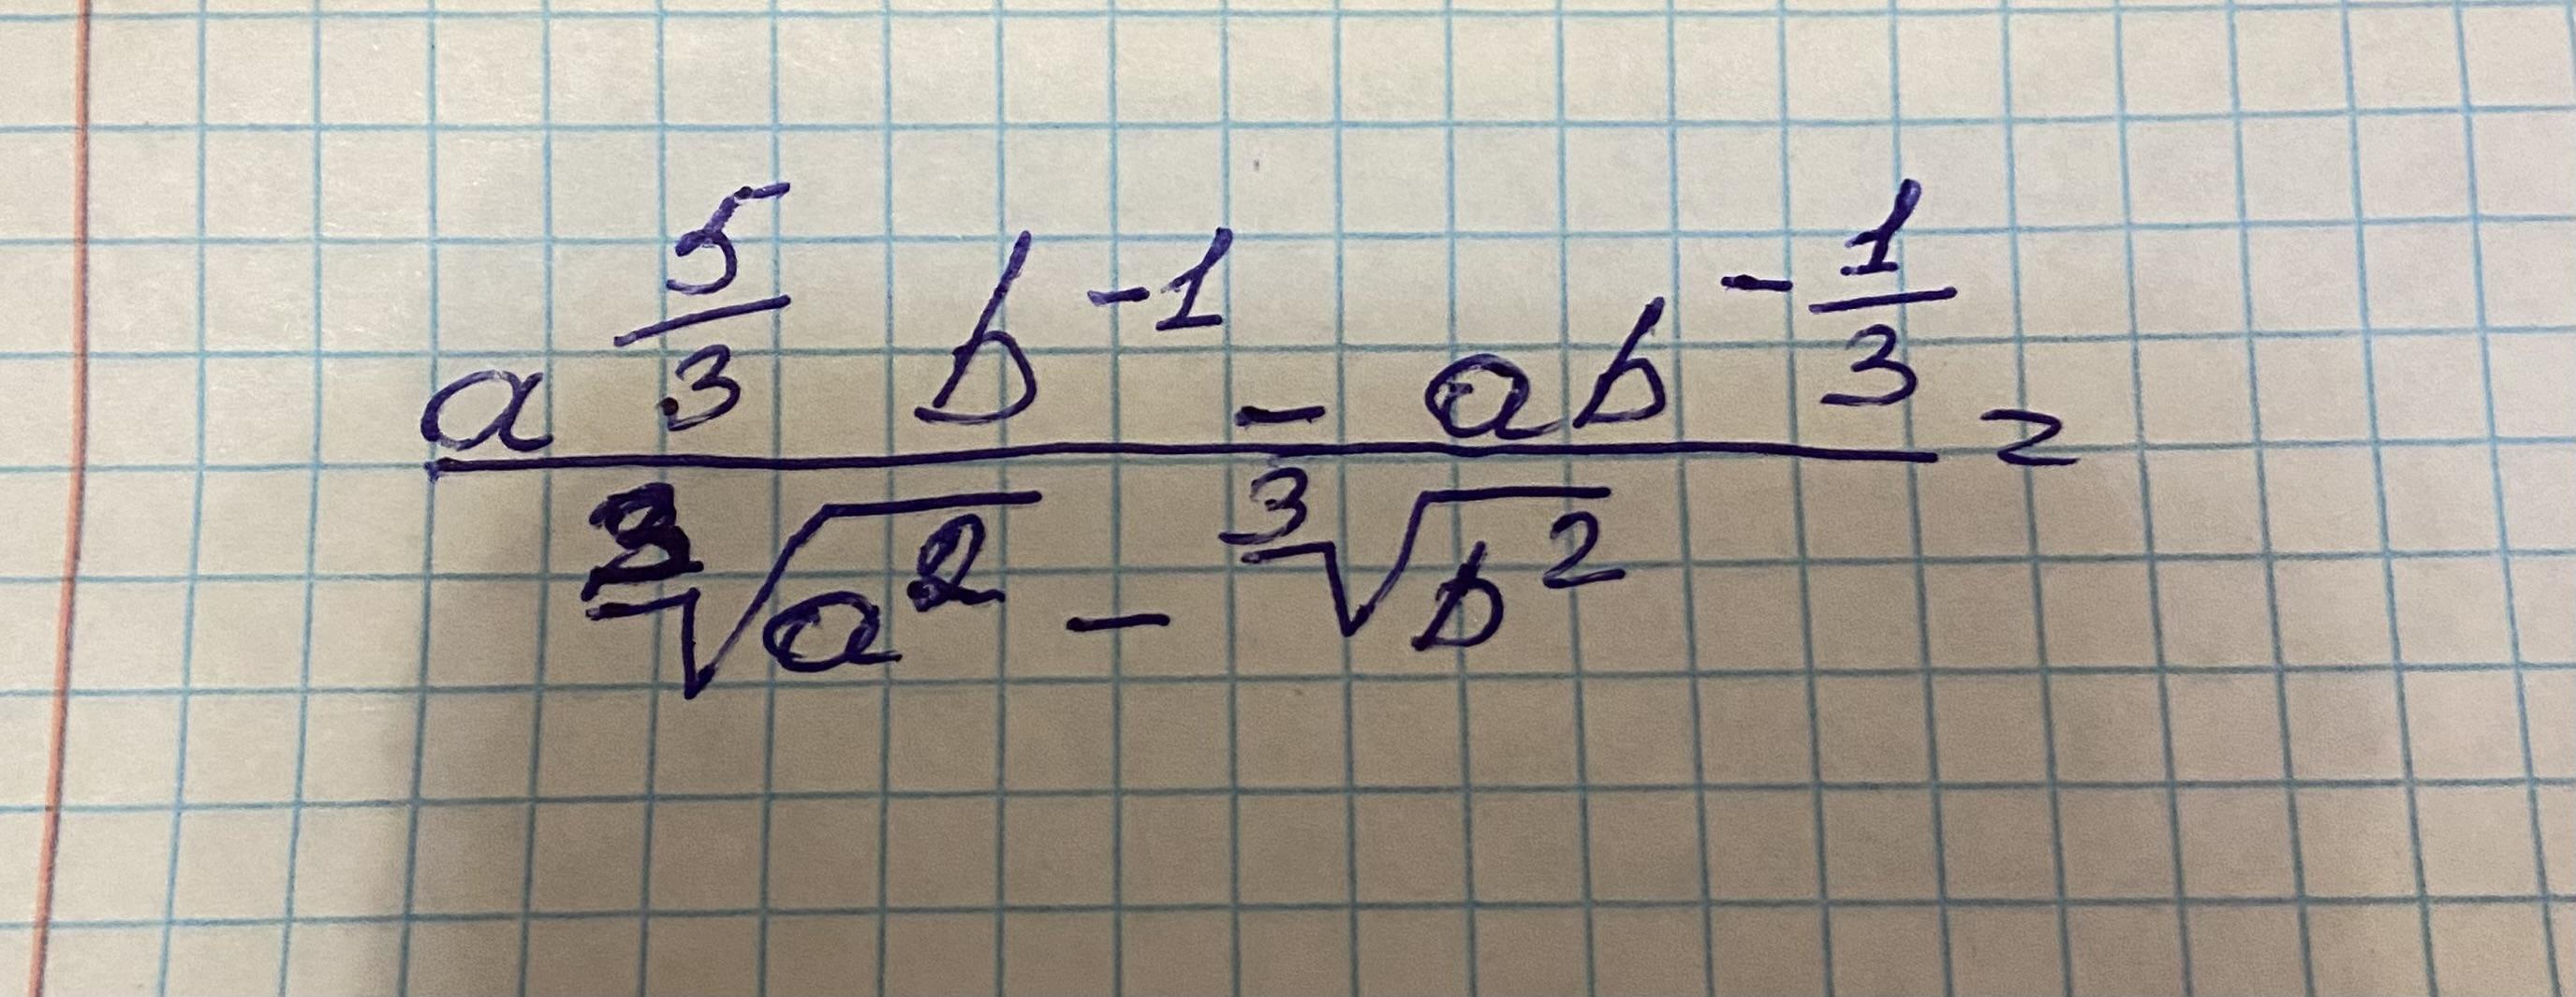 \frac{a^{\frac{5}{3}} b^{-1} - ab^{-\frac{1}{3}}}{\sqrt[3]{a^2} - \sqrt[3]{b^2}} =